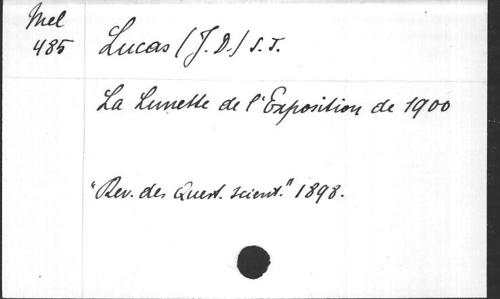 Mel
485
Lucas (J.D.) S.J.
La Lunette de l'Exposition de 1900
"Rev. des Quest. scient." 1898.